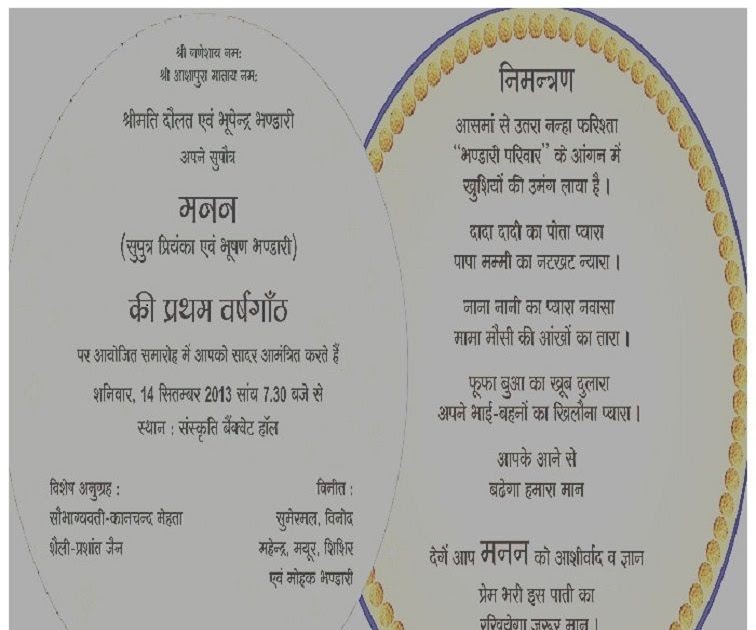 श्री गणेशाय नम:
श्री आशापुरा माताय नम:
श्रीमति दौलत एवं भूपेन्द्र भण्डारी
अपने सुपौत्र
मनन
(सुपुत्र प्रियंका एवं भूषण भण्डारी)
की प्रथम वर्षगाँठ
पर आयोजित समारोह में आपको सादर आमंत्रित करते हैं
शनिवार, 14 सितम्बर 2013 सांय 7.30 बजे से
स्थान : संस्कृति बैंक्वेट हॉल
विशेष अनुग्रह :
सौभाग्यवती-कानचन्द मेहता
शैली-प्रशांत जैन
विनीत :
सुमेरमल, विनोद
महेन्द्र, मयूर, शिशिर
एवं मोहक भण्डारी
निमन्त्रण
आसमां से उतरा नन्हा फरिश्ता
“भण्डारी परिवार” के आंगन में
खुशियों की उमंग लाया है ।
दादा दादी का पोता प्यारा
पापा मम्मी का नटखट न्यारा ।
नाना नानी का प्यारा नवासा
मामा मौसी की आंखों का तारा ।
फूफा बुआ का खूब दुलारा
अपने भाई-बहनों का खिलौना प्यारा ।
आपके आने से
बढेगा हमारा मान
देगें आप मनन को आशीर्वाद व ज्ञान
प्रेम भरी इस पाती का
रखियेगा जरूर मान ।